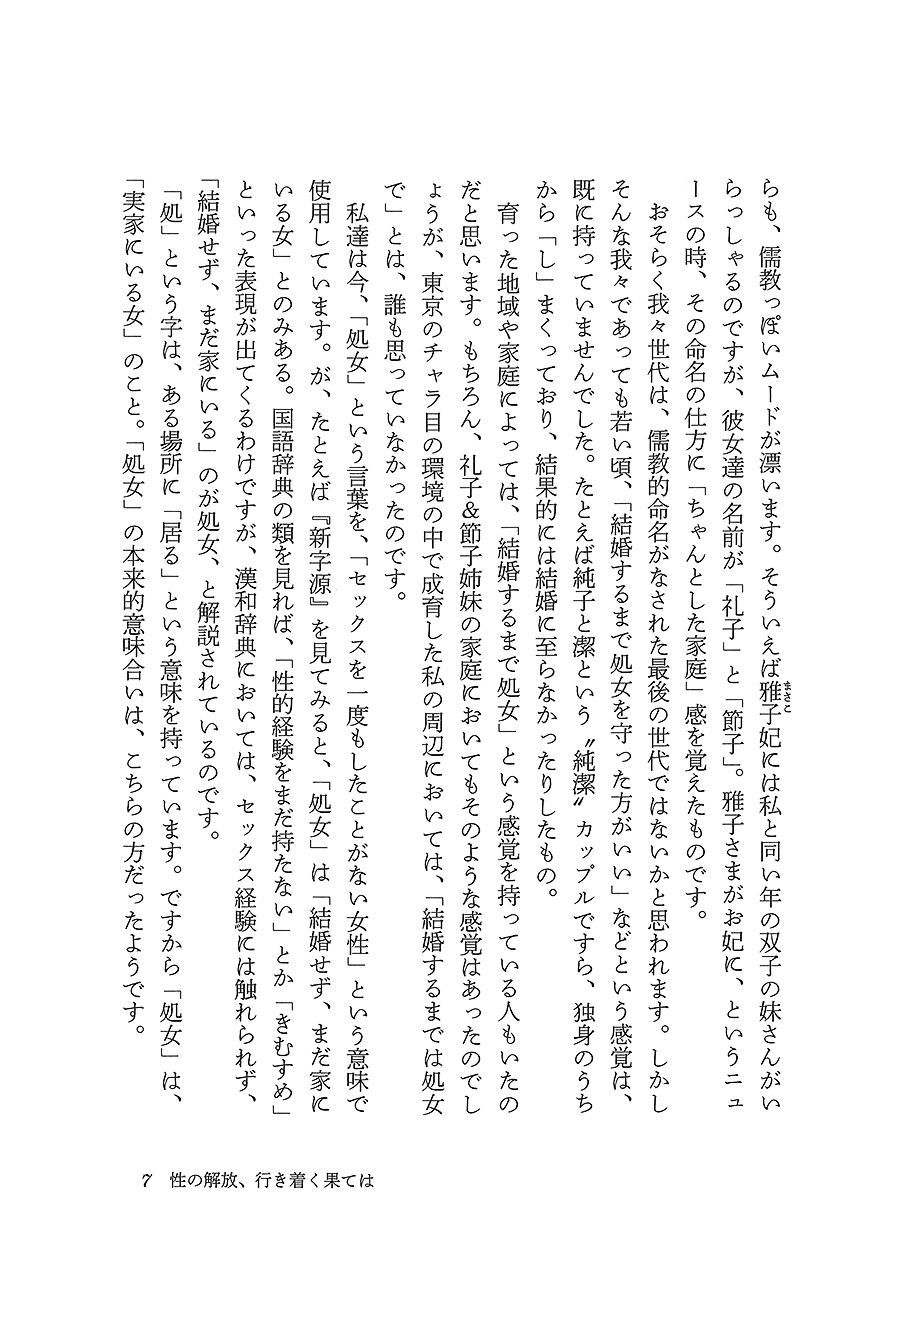 らも、儒教っぽいムードが漂います。そういえば雅子妃には私と同い年の双子の妹さんがい
まさこ
らっしゃるのですが、彼女達の名前が「礼子」と「節子」。雅子さまがお妃に、というニュ
ースの時、その命名の仕方に「ちゃんとした家庭」感を覚えたものです。
おそらく我々世代は、儒教的命名がなされた最後の世代ではないかと思われます。しかし
そんな我々であっても若い頃、「結婚するまで処女を守った方がいい」などという感覚は、
既に持っていませんでした。たとえば純子と潔という〝純潔〟カップルですら、独身のうち
から「し」まくっており、結果的には結婚に至らなかったりしたもの。
育った地域や家庭によっては、「結婚するまで処女」という感覚を持っている人もいたの
だと思います。もちろん、礼子&節子姉妹の家庭においてもそのような感覚はあったのでし
ょうが、東京のチャラ目の環境の中で成育した私の周辺においては、「結婚するまでは処女
で」とは、誰も思っていなかったのです。
私達は今、「処女」という言葉を、「セックスを一度もしたことがない女性」という意味で
使用しています。が、たとえば『新字源』を見てみると、「処女」は「結婚せず、まだ家に
いる女」とのみある。国語辞典の類を見れば、「性的経験をまだ持たない」とか「きむすめ」
といった表現が出てくるわけですが、漢和辞典においては、セックス経験には触れられず、
「結婚せず、まだ家にいる」のが処女、と解説されているのです。
「処」という字は、ある場所に「居る」という意味を持っています。ですから「処女」は、
「実家にいる女」のこと。「処女」の本来的意味合いは、こちらの方だったようです。
7 性の解放、行き着く果ては